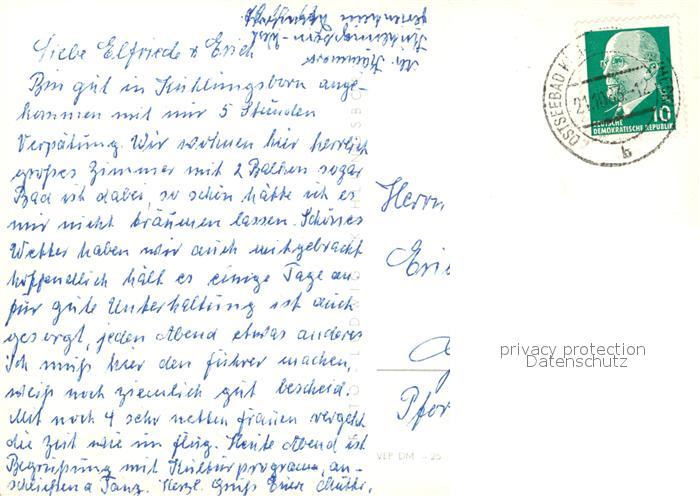 Liebe Elfriede & Erich
Bin gut in Kühlungsborn ange-
kommen mit nur 5 Stunden
Verspätung. Wir wohnen hier herrlich
großes Zimmer mit 2 Balkon sogar
Bad ist dabei, so schön hätte ich es
mir nicht träumen lassen. Schönes
Wetter haben wir auch mitgebracht
hoffendlich hält es einige Tage an
für gute Unterhaltung ist auch
gesorgt, jeden Abend etwas anderes
Ich muß hier den führer machen,
weiß noch ziemlich gut bescheid.
Mit noch 4 sehr netten frauen vergeht
die Zeit wie im flug. Heute Abend ist
Begrüßung mit Kulturprogramm, an-
schließend Tanz. Herzl. Grüß Eure Mutti.
OSTSEEBAD K
21.10.
b
10
DEUTSCHE
DEMOKRATISCHE REPUBLIK
Herrn
Eri
Pfor
VLP DM - 25
privacy protection
Datenschutz